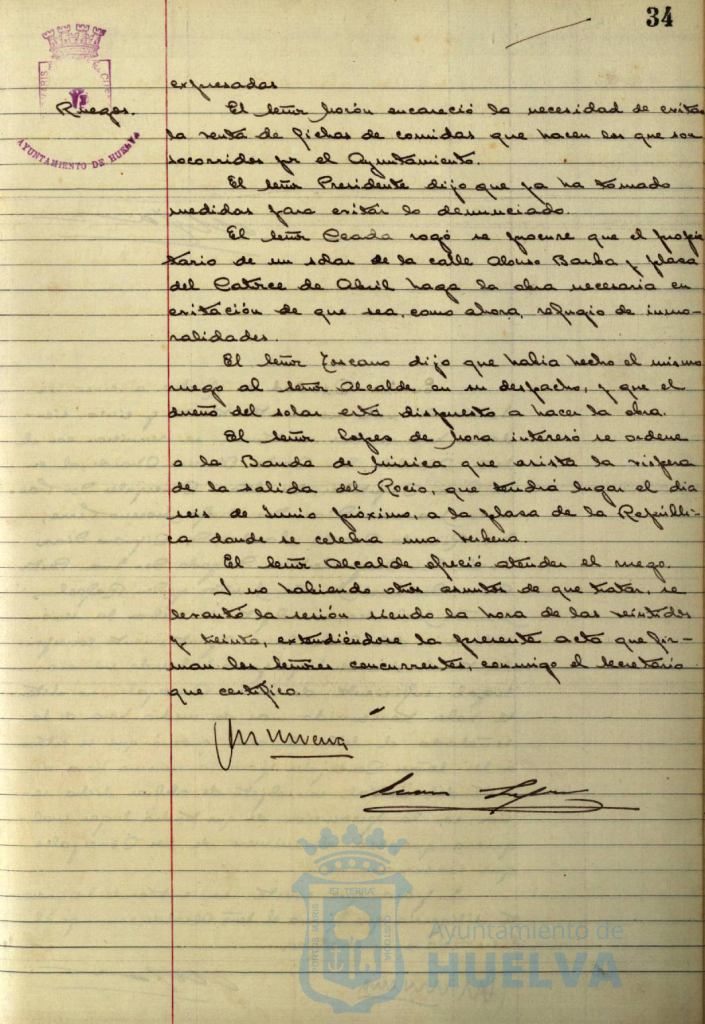 34
AYUNTAMIENTO DE HUELVA
Ruegos.
expresadas
El señor Morón encareció la necesidad de evitar
la venta de fichas de comidas que hacen los que son
socorridos por el Ayuntamiento.
El señor Presidente dijo que ya ha tomado
medidas para evitar lo denunciado.
El señor Ceada rogó se procure que el propie
tario de un solar de la calle Alonso Barba y plaza
del Catorce de Abril haga la obra necesaria en
evitación de que sea, como ahora, refugio de inmo-
ralidades.
El señor Toscano dijo que había hecho el mismo
ruego al señor Alcalde en su despacho, y que el
dueño del solar está dispuesto a hacer la obra.
El señor López de Mora interesó se ordene
a la Banda de Música que asista la víspera
de la salida del Rocío, que tendrá lugar el día
seis de Junio próximo, a la plaza de la Repúbli-
ca donde se celebra una verbena.
El señor Alcalde ofreció atender el ruego.
Y no habiendo otros asuntos de que tratar, se
levantó la sesión siendo la hora de las veintidós
y treinta, extendiéndose la presente acta que fir-
man los señores concurrentes, conmigo el Secretario
que certifico.
Ayuntamiento de
HUELVA